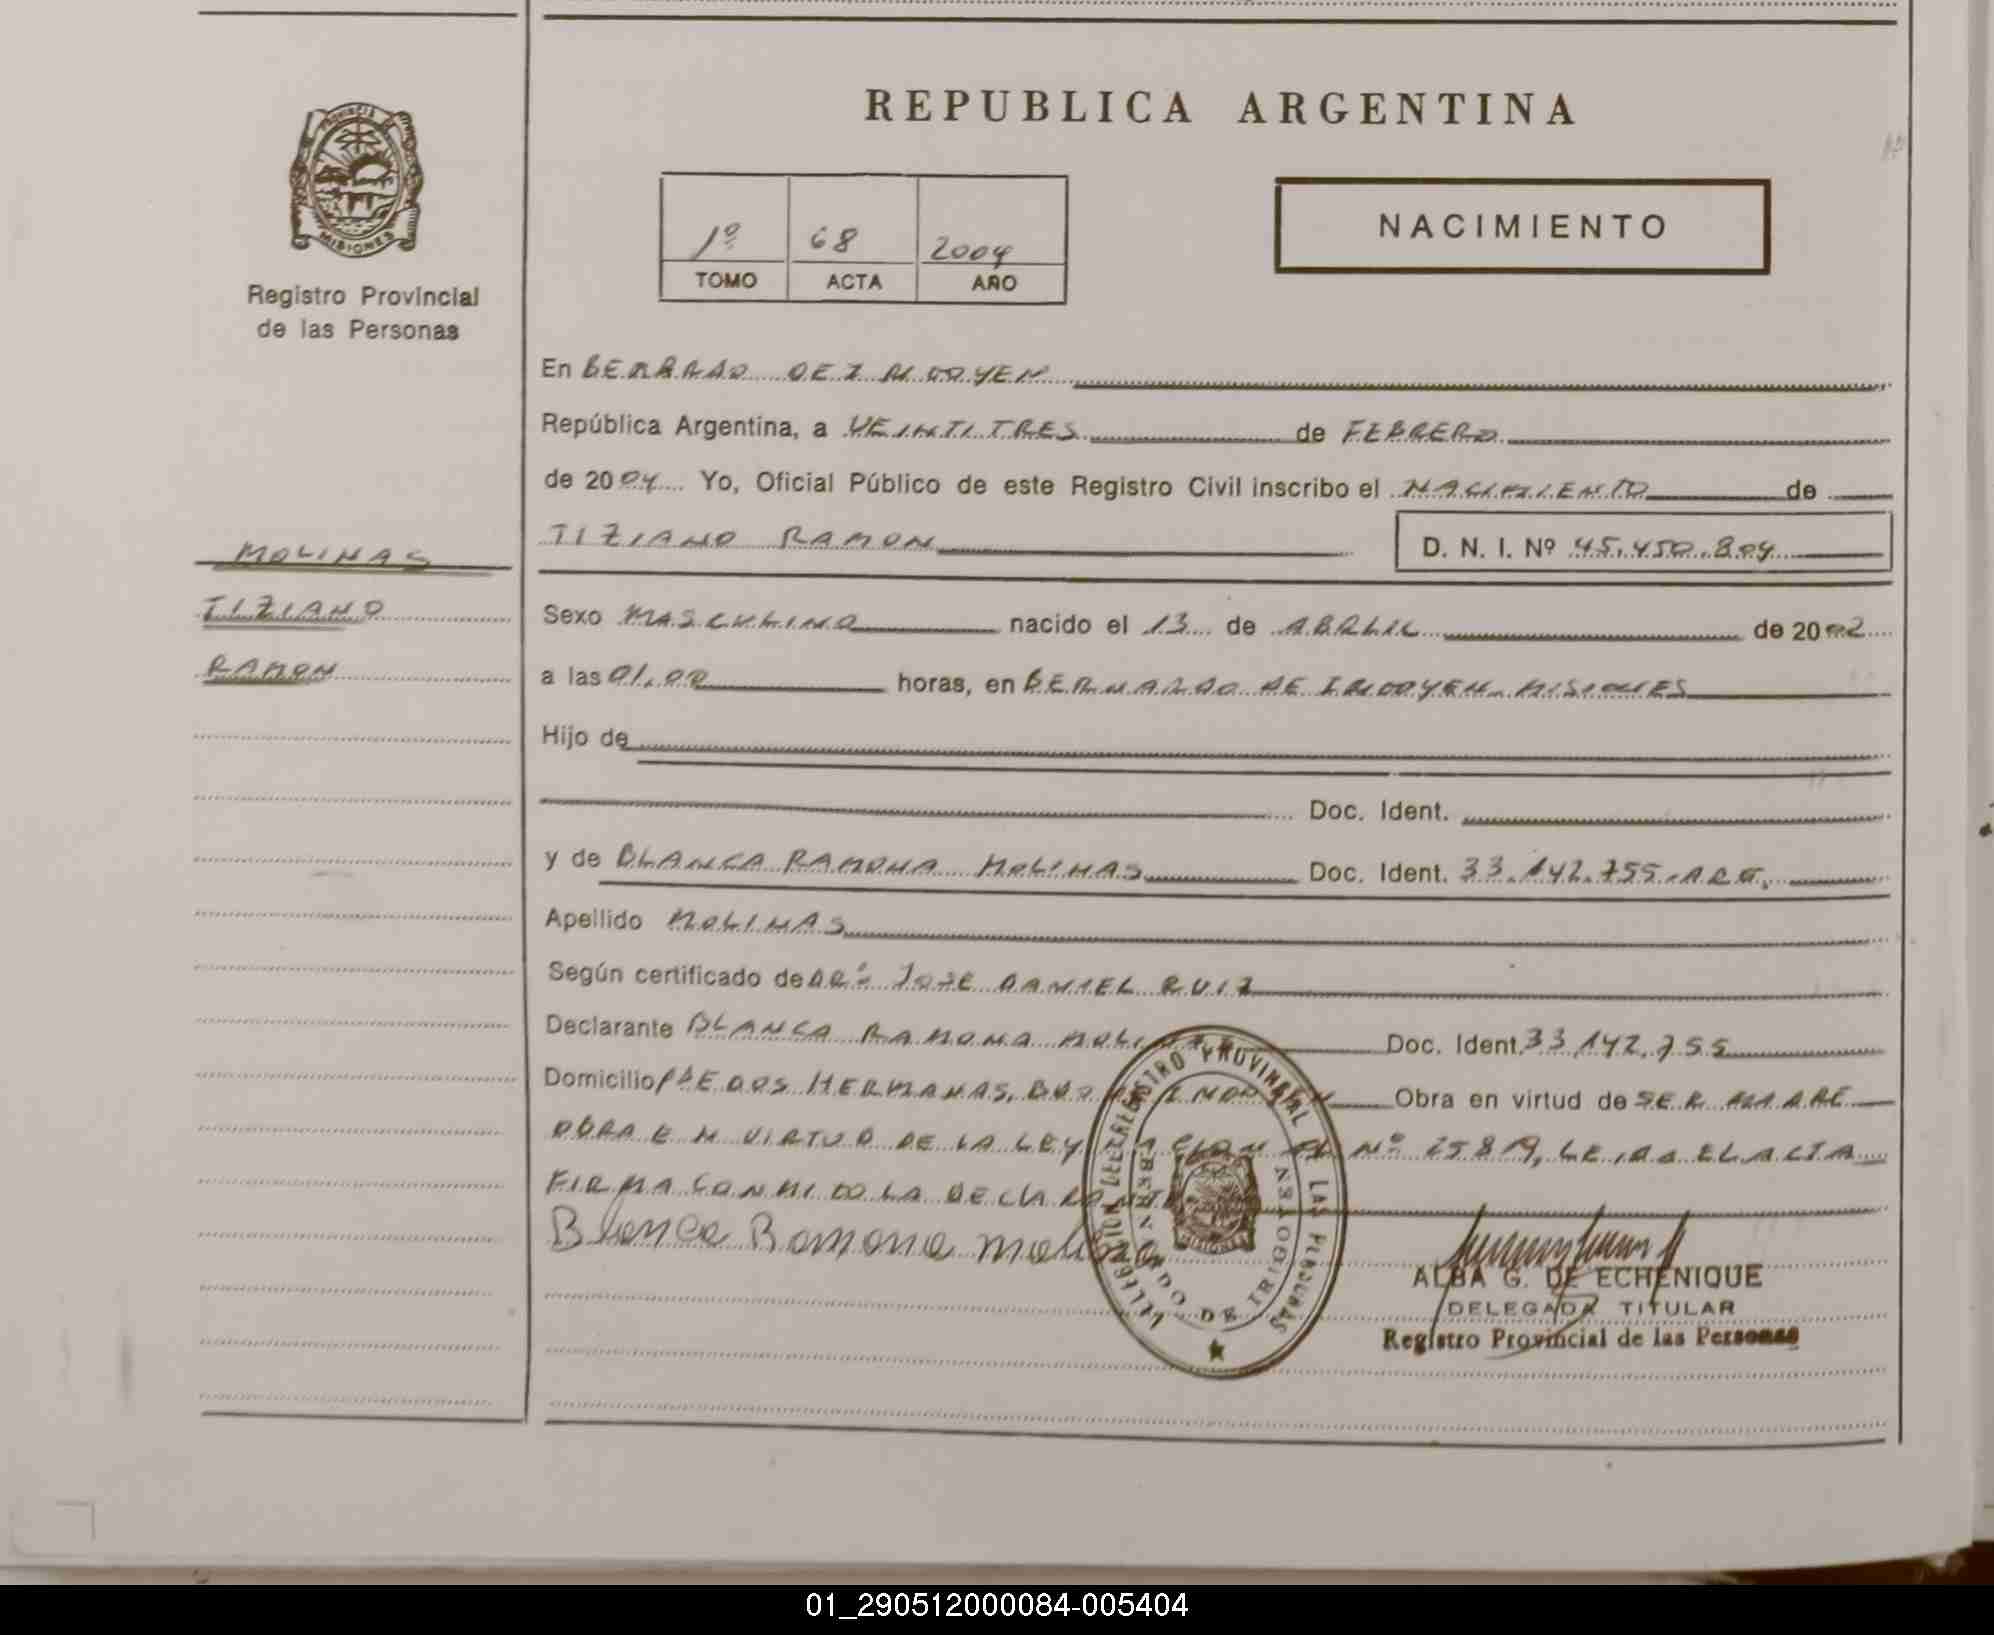 REPUBLICA ARGENTINA
PROVINCIA DE
MISIONES
Registro Provincial
de las Personas
1º 68 2004
TOMO ACTA AÑO
NACIMIENTO
En BERRADO DE IRIGOYEN
República Argentina, a VEINTITRES de FEBRERO
de 2004 Yo, Oficial Público de este Registro Civil inscribo el NACIMIENTO de
TIZIANO RAMON D. N. I. Nº 45.450.804
MOLINAS
TIZIANO
RAMON
Sexo MASCULINO nacido el 13 de ABRIL de 2002
a las 01,00 horas, en BERNARDO DE IRIGOYEN MISIONES
Hijo de
Doc. Ident.
y de BLANCA RAMONA MOLINAS Doc. Ident. 33.142.755-ARG.
Apellido MOLINAS
Según certificado de DR: JOSE DANIEL RUIZ
Declarante BLANCA RAMONA MOLINAS Doc. Ident. 33,142,755
Domicilio PJE DOS HERMANAS, BDO DE IRIGOYEN Obra en virtud de SER MADRE
OBRA EN VIRTUD DE LA LEY NACIONAL Nº 25819, LEIDO EL ACTA
FIRMA CONMIGO LA DECLARANTE
Blanca Ramona molina
REGISTRO PROVINCIAL DE LAS PERSONAS
BERNARDO DE IRIGOYEN
MISIONES
ALBA G. DE ECHENIQUE
DELEGADA TITULAR
Registro Provincial de las Personas
01_290512000084-005404